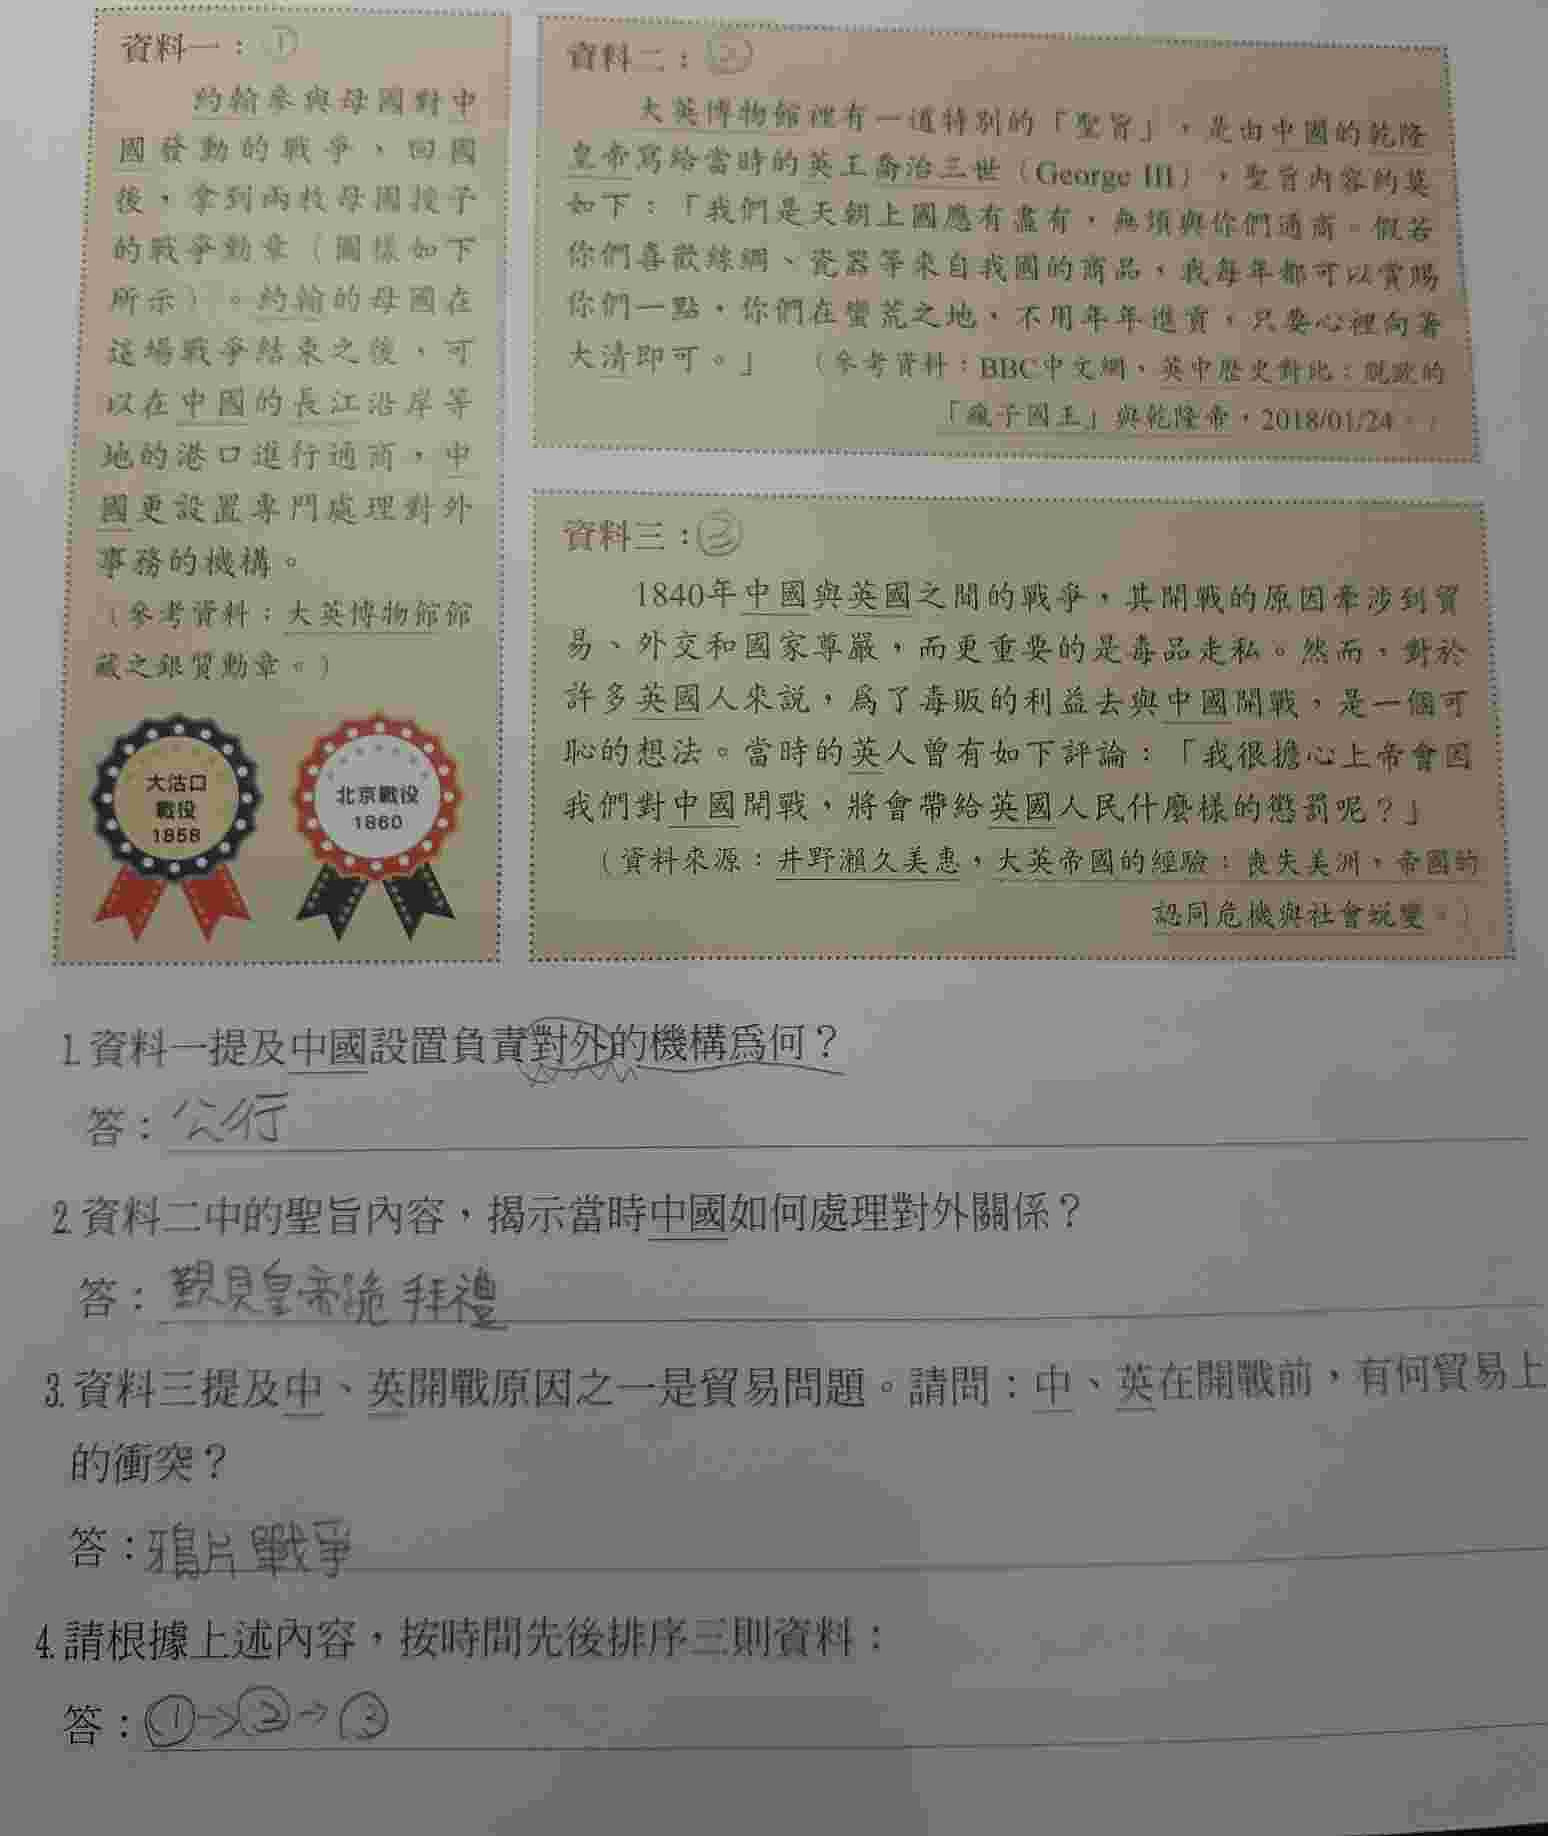 資料一：①
約翰參與母國對中
國發動的戰爭，回國
後，拿到兩枚母國授予
的戰爭勳章（圖樣如下
所示）。約翰的母國在
這場戰爭結束之後，可
以在中國的長江沿岸等
地的港口進行通商，中
國更設置專門處理對外
事務的機構。
（參考資料：大英博物館館
藏之銀質勳章。）
大沽口
戰役
1858
北京戰役
1860
資料二：②
大英博物館裡有一道特別的「聖旨」，是由中國的乾隆
皇帝寫給當時的英王喬治三世（George III），聖旨內容約莫
如下：「我們是天朝上國應有盡有，無須與你們通商。假若
你們喜歡絲綢、瓷器等來自我國的商品，我每年都可以賞賜
你們一點，你們在蠻荒之地，不用年年進貢，只要心裡向著
大清即可。」（參考資料：BBC中文網，英中歷史對比：親歐的
「瘋子國王」與乾隆帝，2018/01/24。）
資料三：③
1840年中國與英國之間的戰爭，其開戰的原因牽涉到貿
易、外交和國家尊嚴，而更重要的是毒品走私。然而，對於
許多英國人來說，為了毒販的利益去與中國開戰，是一個可
恥的想法。當時的英人曾有如下評論：「我很擔心上帝會因
我們對中國開戰，將會帶給英國人民什麼樣的懲罰呢？」
（資料來源：井野瀨久美惠，大英帝國的經驗：喪失美洲，帝國的
認同危機與社會蛻變。）
1.資料一提及中國設置負責對外的機構為何？
答：公行
2.資料二中的聖旨內容，揭示當時中國如何處理對外關係？
答：覲見皇帝跪拜禮
3.資料三提及中、英開戰原因之一是貿易問題。請問：中、英在開戰前，有何貿易上
的衝突？
答：鴉片戰爭
4.請根據上述內容，按時間先後排序三則資料：
答：①→②→③